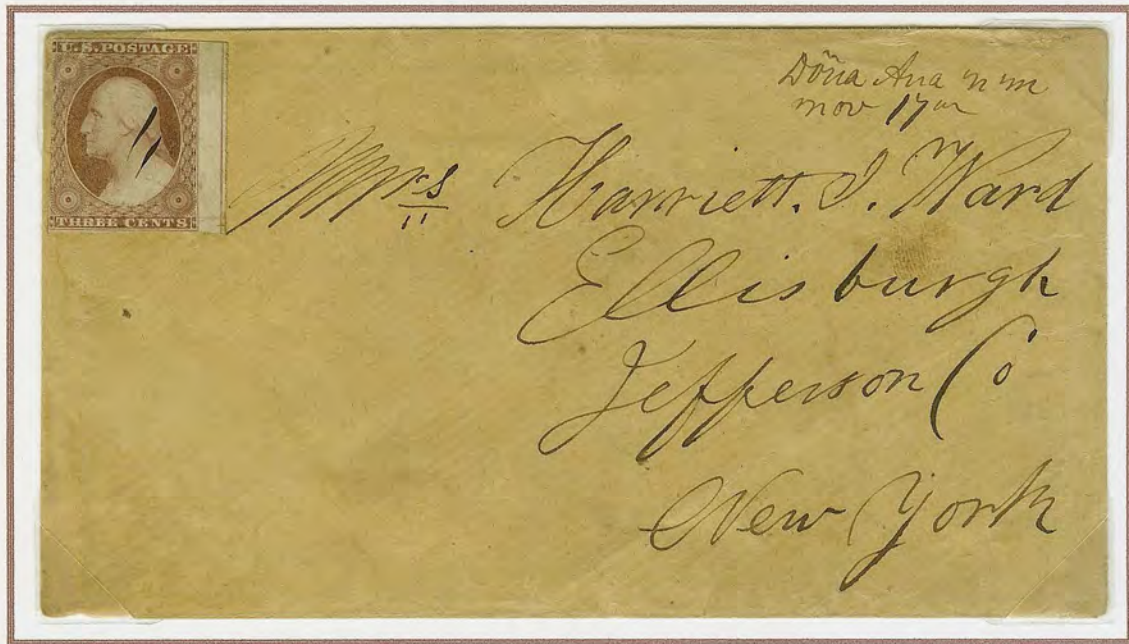 U.S. POSTAGE
THREE CENTS
Doña Ana n m
nov 17th
Mrs Harriett. I. Ward
Ellisburgh
Jefferson Co
New York